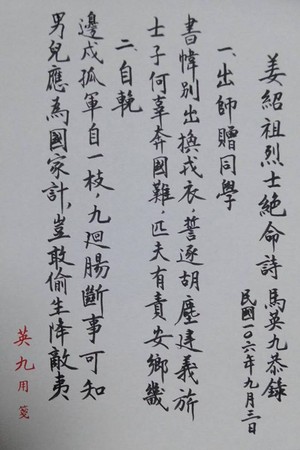 姜紹祖烈士絕命詩 馬英九恭錄
民國一〇六年九月三日
一、出師贈同學
書幃別出換戎衣，誓逐胡塵建義旂
士子何辜奔國難，匹夫有責安鄉畿
二、自輓
邊戍孤軍自一枝，九迴腸斷事可知
男兒應為國家計，豈敢偷生降敵夷
英九用箋